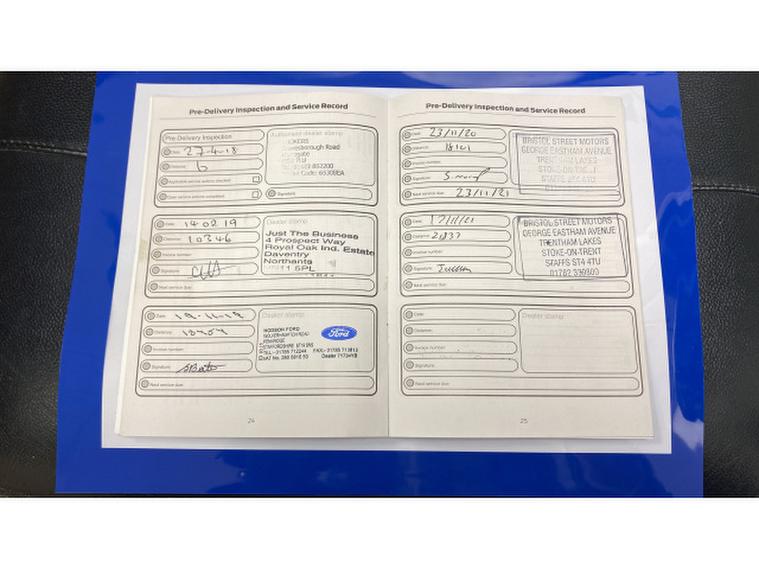 Pre-Delivery Inspection and Service Record
Pre-Delivery Inspection
Date: 27-4-18
Distance: 6
Applicable service actions checked
Open service actions completed
Authorised dealer stamp
Road
Signature:
Date: 14 02 19
Distance: 10346
Invoice number:
Signature:
Next service due:
Dealer stamp
Just The Business
4 Prospect Way
Royal Oak Ind. Estate
Daventry
Northants
11 5PL
Date: 19-11-19
Distance:
Invoice number:
Signature: SBates
Next service due:
Dealer stamp
HODSON FORD
Ford
24
Pre-Delivery Inspection and Service Record
Date: 23/11/20
Distance: 18101
Invoice number:
Signature:
Next service due: 23/11/21
BRISTOL STREET MOTORS
GEORGE EASTHAM AVENUE
TRENTHAM LAKES
STOKE-ON-TRENT
STAFFS ST4 4TU
Date: 17/11/21
Distance:
Invoice number:
Signature:
Next service due:
BRISTOL STREET MOTORS
GEORGE EASTHAM AVENUE
TRENTHAM LAKES
STOKE-ON-TRENT
STAFFS ST4 4TU
Date:
Distance:
Invoice number:
Signature:
Next service due:
Dealer stamp
25